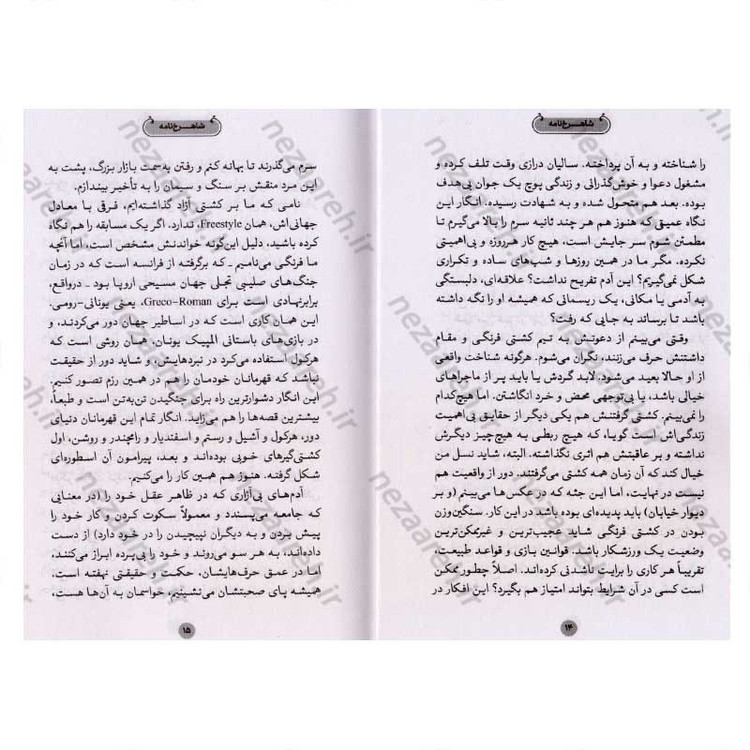 شاهرخ‌نامه
را شناخته و به آن پرداخته. سالیان درازی وقت تلف کرده و
مشغول دعوا و خوش‌گذرانی و زندگی پوچ یک جوان بی‌هدف
بوده. بعد هم متحول شده و به شهادت رسیده. انگار این
نگاه عمیق که هنوز هم هر چند ثانیه سرم را بالا می‌گیرم تا
مطمئن شوم سر جایش است، هیچ کار هرروزه و بی‌اهمیتی
نکرده. مگر ما در همین روزها و شب‌های ساده و تکراری
شکل نمی‌گیریم؟ این آدم تفریح نداشت؟ علاقه‌ای، دلبستگی
به آدمی یا مکانی، یک ریسمانی که همیشه او را نگه داشته
باشد تا برساند به جایی که رفت؟
وقتی می‌بینم از دعوتش به تیم کشتی فرنگی و مقام
داشتنش حرف می‌زنند، نگران می‌شوم. هرگونه شناخت واقعی
از او حالا بعید می‌شود. لابد گردش یا باید پر از ماجراهای
خیالی باشد، یا بی‌توجهی محض و خرد انگاشتن. اما هیچ‌کدام
را نمی‌بینم. کشتی گرفتنش هم یکی دیگر از حقایق بی‌اهمیت
زندگی‌اش است گویا، که هیچ ربطی به هیچ‌چیز دیگرش
نداشته و بر عاقبتش هم اثری نگذاشته. البته، شاید نسل من
خیال کند که آن زمان همه کشتی می‌گرفتند. دور از واقعیت هم
نیست در نهایت، اما این جثه که در عکس‌ها می‌بینم (و بر
دیوار خیابان) باید پدیده‌ای بوده باشد در این کار. سنگین‌وزن
بودن در کشتی فرنگی شاید عجیب‌ترین و غیرممکن‌ترین
وضعیت یک ورزشکار باشد. قوانین بازی و قواعد طبیعت،
تقریباً هر کاری را برایت ناشدنی کرده‌اند. اصلاً چطور ممکن
است کسی در آن شرایط بتواند امتیاز هم بگیرد؟ این افکار در
۱۴
شاهرخ‌نامه
سرم می‌گذرند تا بهانه کنم و رفتن به‌سمت بازار بزرگ، پشت به
این مرد منقش بر سنگ و سیمان را به تأخیر بیندازم.
نامی که ما بر کشتی آزاد گذاشته‌ایم، فرقی با معادل
جهانی‌اش، همان Freestyle، ندارد. اگر یک مسابقه را هم نگاه
کرده باشید، دلیل این‌گونه خواندنش مشخص است، اما آنچه
ما فرنگی می‌نامیم ـ که برگرفته از فرانسه است که در زمان
جنگ‌های صلیبی تجلی جهان مسیحی اروپا بود ـ درواقع،
برابرنهادی است برای Greco-Roman، یعنی یونانی-رومی.
این همان کاری است که در اساطیر جهان دور می‌کردند، و
در بازی‌های باستانی المپیک یونان، همان روشی است که
هرکول استفاده می‌کرد در نبردهایش، و شاید دور از حقیقت
نباشد که قهرمانان خودمان را هم در همین رزم تصور کنیم.
این انگار دشوارترین راه برای جنگیدن تن‌به‌تن است و طبعاً،
بیشترین قصه‌ها را هم می‌زاید. انگار تمام این قهرمانان دنیای
دور، هرکول و آشیل و رستم و اسفندیار و رامچندر و روشن، اول
کشتی‌گیرهای خوبی بوده‌اند و بعد، پیرامون آن اسطوره‌ای
شکل گرفته. هنوز هم همین کار را می‌کنیم.
آدم‌های بی‌آزاری که در ظاهر عقل خود را (در معنایی
که جامعه می‌پسندد و معمولاً سکوت کردن و کار خود را
پیش بردن و به دیگران نپیچیدن را در خود دارد) از دست
داده‌اند، به هر سو می‌روند و خود را بی‌پرده ابراز می‌کنند،
اما در عمق حرف‌هایشان، حکمت و حقیقتی نهفته است،
همیشه پای صحبتشان می‌نشینیم، حواسمان به آن‌ها هست،
۱۵
nezaareh.ir